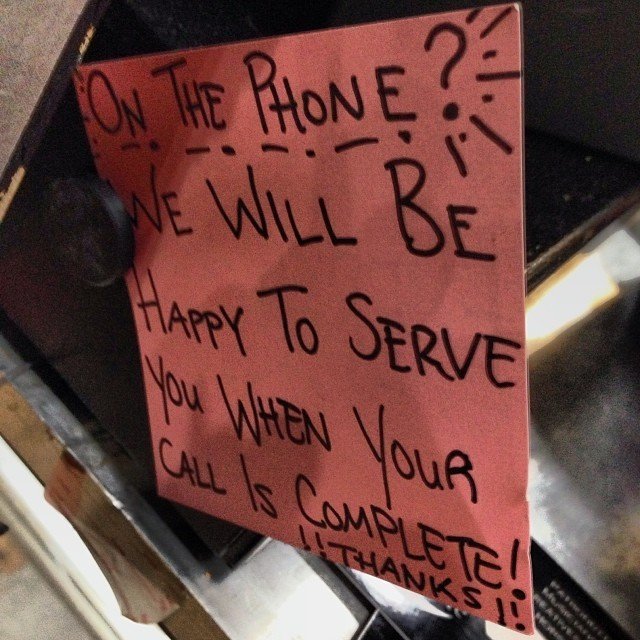 ON THE PHONE?
WE WILL BE
HAPPY TO SERVE
YOU WHEN YOUR
CALL IS COMPLETE!
!!THANKS!!